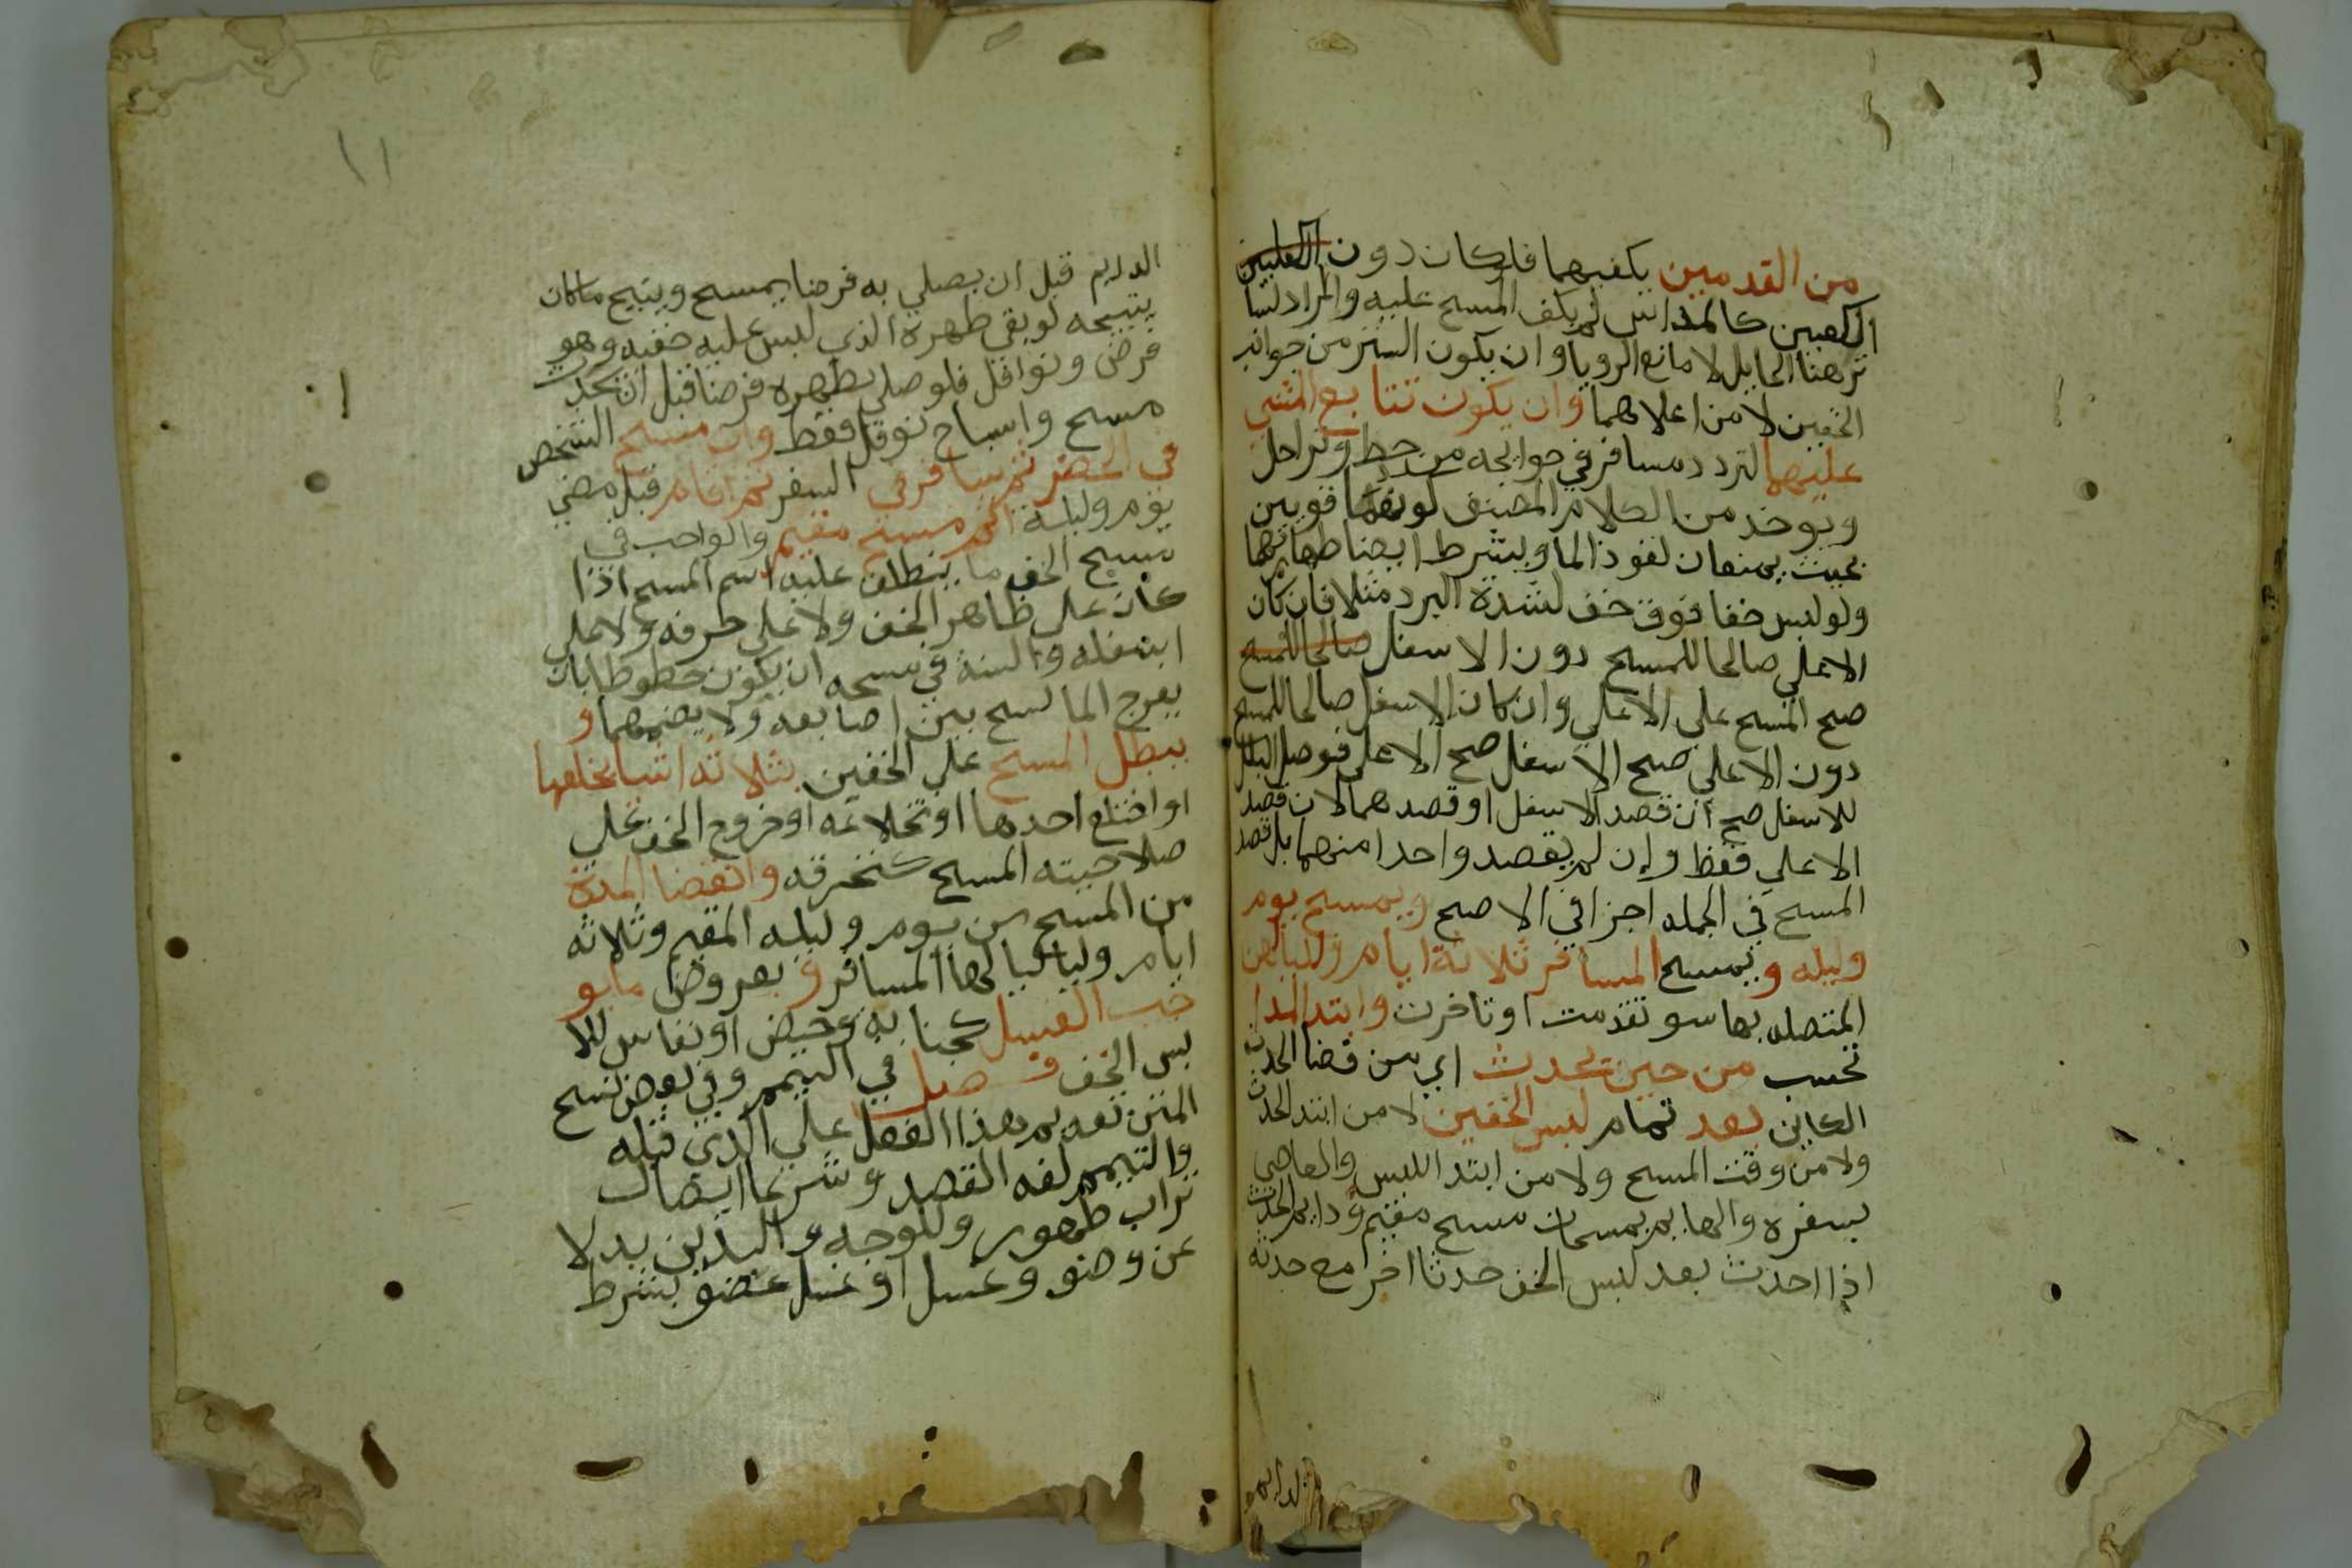 من القدمين بكعبيهما فلو كان دون الكعبين
الكعبين كالمداس لم يكف المسح عليه والمراد لسا
ترهنا الحايل لا مانع الرويا وان يكون الستر من جوانب
الخفين لا من اعلاهما وان يكون تتابع المشي
عليهما لتردد مسافر في حوايجه من حط وترحال
ويوخذ من كلام المصنف كونهما قويين
بحيث يمنعان نفوذ الما ويشترط ايضا طهارتهما
ولو لبس خفا فوق خف لشدة البرد مثلا فان كان
الاعلي صالحا للمسح دون الاسفل صالحا للمسح
صح المسح علي الاعلي وان كان الاسفل صالحا للمسح
دون الاعلي صح الاسفل صح الاعلي فوصل البلل
للاسفل صح ان قصد الاسفل او قصدهما لا ان قصد
الاعلي فقط وان لم يقصد واحدا منهما بل قصد
المسح في الجمله اجزا في الاصح ويمسح يوم
وليله ويمسح المسافر ثلاثة ايام ولياليهن
المتصله بها سو تقدمت او تاخرت وابتدا المدا
تحسب من حين يحدث اي من قضا الحدث
الكاين بعد تمام لبس الخفين لا من ابتدا الحدث
ولا من وقت المسح ولا من ابتدا اللبس والعاصي
بسفره والهايم يمسحان مسح مقيم ودايم الحدث
اذا احدث بعد لبس الخف حدثا اخر مع حدثه
الدايم
١١
الدايم قبل ان يصلي به فرضا يمسح ويتبيح ما كان
يتبيحه لو بقي طهره الذي لبس عليه خفيه وهو
فرض ونوافل فلو صلي بطهره فرضا قبل ان يحدث
مسح واستباح نوافل فقط وان مسح الشخص
في الحضر ثم سافر في السفر ثم اقام قبل مضي
يوم وليلة اتم مسح مقيم والواجب في
مسح الخف ما ينطلق عليه اسم المسح اذا
كان علي ظاهر الخف ولا علي حرفه ولا علي
اسفله والسنة في مسحه ان يكون خطوطا بان
يفرج الماسح بين اصابعه ولا يضمهما و
يبطل المسح علي الخفين بثلاثه اشيا بخلعهما
او اختلع احدهما او نخلاعه او خروج الخف عن
صلاحيته المسح كتخرقه وانقضا المدة
من المسح من يوم وليله المقيم وثلاثه
ايام ولياليها لمسافر و بعروض ما يو
جب الغسل كجنابه وحيض او نفاس للا
بس الخف فصل في التيمم وفي بعض نسخ
المتن تقديم هذا الفصل علي الذي قبله
والتيمم لغه القصد وشرعا ايصال
تراب طهور وللوجه واليدين بدلا
عن وضو وغسل او غسل عضو بشرط